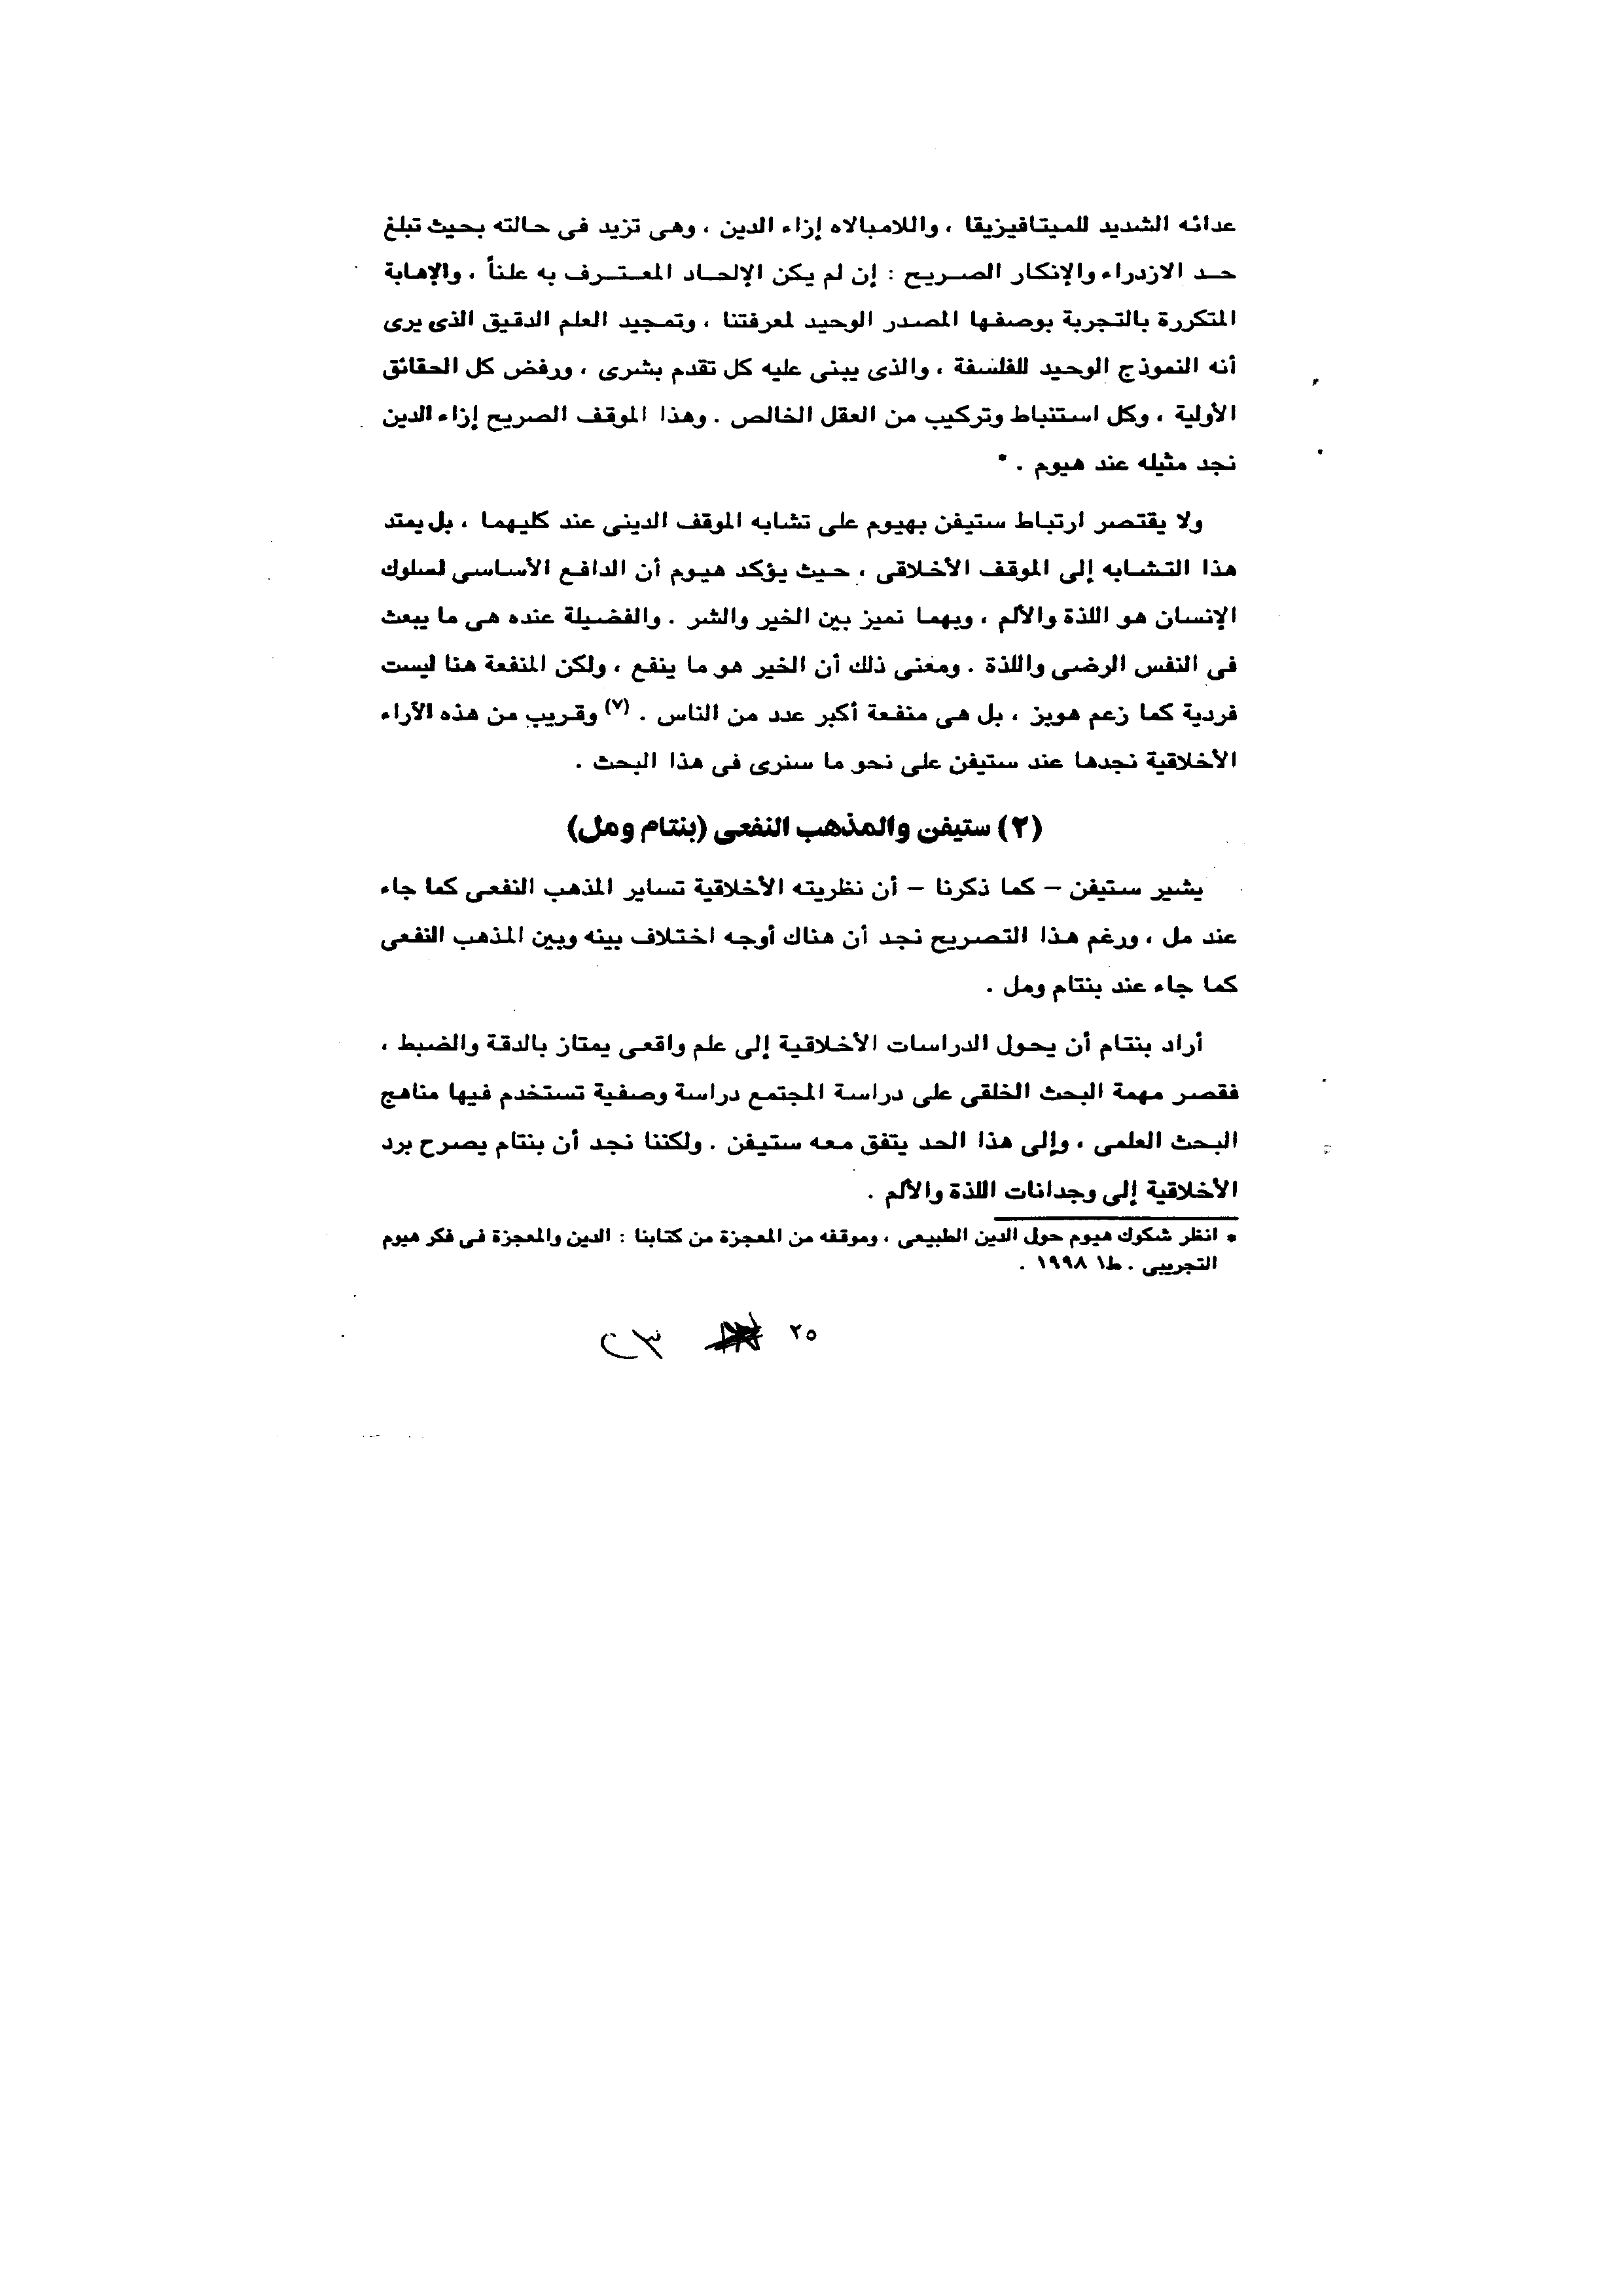 عدائه الشديد للميتافيزيقا ، واللامبالاه إزاء الدين ، وهى تزيد فى حالته بحيث تبلغ
حد الازدراء والإنكار الصريح : إن لم يكن الإلحاد المعترف به علناً ، والإهابة
المتكررة بالتجربة بوصفها المصدر الوحيد لمعرفتنا ، وتمجيد العلم الدقيق الذى يرى
أنه النموذج الوحيد للفلسفة ، والذى يبنى عليه كل تقدم بشرى ، ورفض كل الحقائق
الأولية ، وكل استنباط وتركيب من العقل الخالص . وهذا الموقف الصريح إزاء الدين
نجد مثيله عند هيوم . *
ولا يقتصر ارتباط ستيفن بهيوم على تشابه الموقف الدينى عند كليهما ، بل يمتد
هذا التشابه إلى الموقف الأخلاقى ، حيث يؤكد هيوم أن الدافع الأساسى لسلوك
الإنسان هو اللذة والألم ، وبهما نميز بين الخير والشر . والفضيلة عنده هى ما يبعث
فى النفس الرضى واللذة . ومعنى ذلك أن الخير هو ما ينفع ، ولكن المنفعة هنا ليست
فردية كما زعم هوبز ، بل هى منفعة أكبر عدد من الناس . (٧) وقريب من هذه الآراء
الأخلاقية نجدها عند ستيفن على نحو ما سنرى فى هذا البحث .
(٢) ستيفن والمذهب النفعى (بنتام ومل)
يشير ستيفن – كما ذكرنا – أن نظريته الأخلاقية تساير المذهب النفعى كما جاء
عند مل ، ورغم هذا التصريح نجد أن هناك أوجه اختلاف بينه وبين المذهب النفعى
كما جاء عند بنتام ومل .
أراد بنتام أن يحول الدراسات الأخلاقية إلى علم واقعى يمتاز بالدقة والضبط ،
فقصر مهمة البحث الخلقى على دراسة المجتمع دراسة وصفية تستخدم فيها مناهج
البحث العلمى ، وإلى هذا الحد يتفق معه ستيفن . ولكننا نجد أن بنتام يصرح برد
الأخلاقية إلى وجدانات اللذة والألم .
* انظر شكوك هيوم حول الدين الطبيعى ، وموقفه من المعجزة من كتابنا : الدين والمعجزة فى فكر هيوم
التجريبى . ط١ ١٩٩٨ .
٢٥